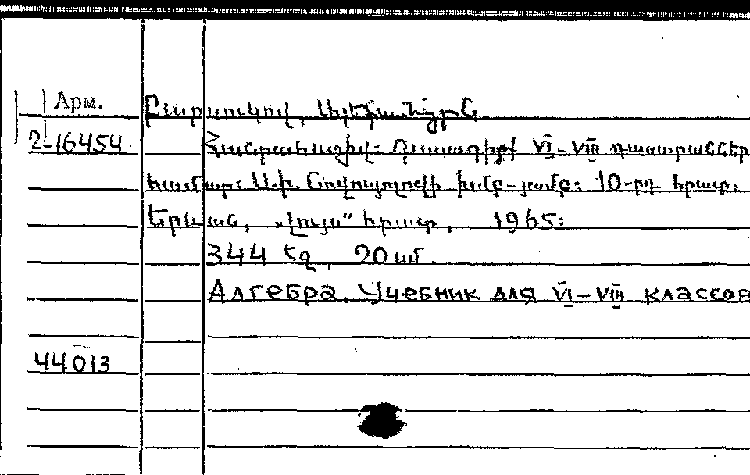 Арм.
Բարսուկով, Ալեքսանդր Ն.
2-16454 Հանրահաշիվ: Դասագիրք VI–VIII դասարանների
համար: Ս.Ի. խմբ-յամբ: 10-րդ հրատ.
Երևան, „Լույս" հրատ., 1965:
344 էջ, 20 սմ.
Алгебра. Учебник для VI–VIII классов
44013